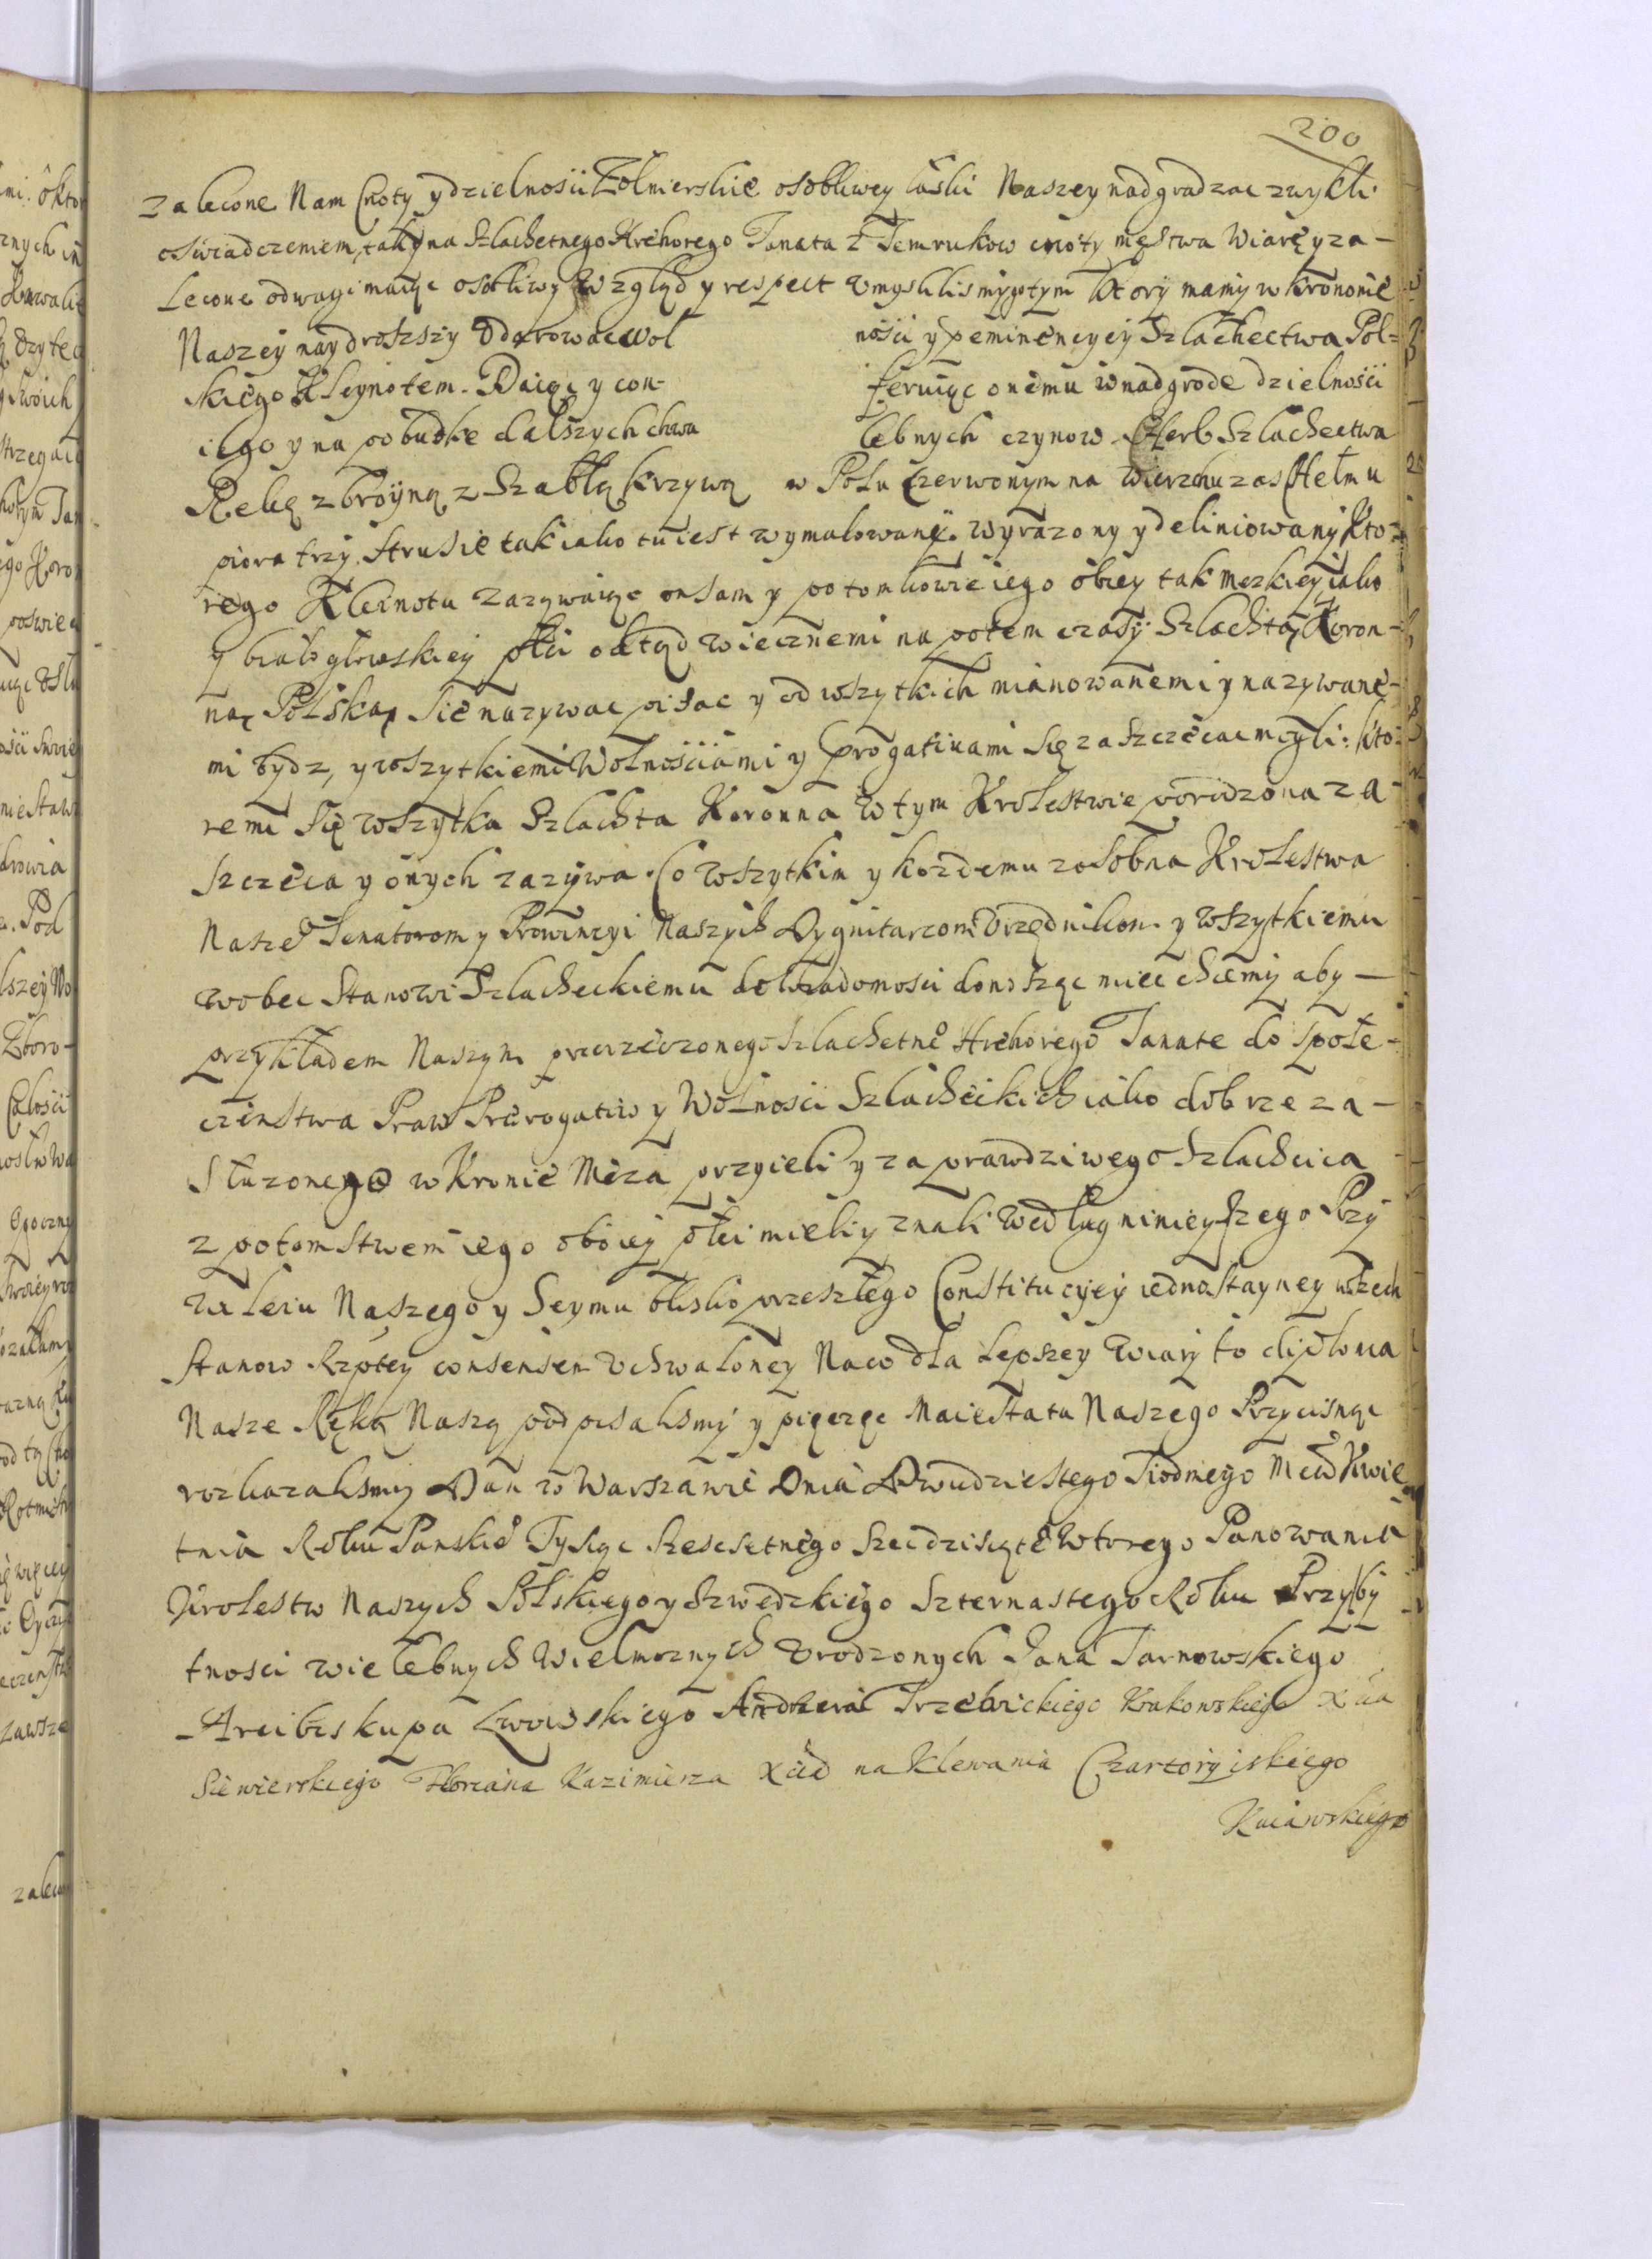 200
zalecone Nam Cnoty y dzielnosci Zołnierskie osobliwey łaski Naszey nadgradzac zwykli
oswiadczeniem, tak y na Szlachetnego Hrehorego Tanata z Temrukow cnoty męstwa Wiarę y za-
lecone odwagi maiąc osobliwy wzgląd y respect umyslilismy ytym ktory mamy w koronie
Naszey naydroższy Udarowac wol nosci y peminencyey Szlachectwa Pol-
skiego Kleynotem. Daiąc y con- feruiąc onemu w nadgrode dzielnosci
iego y na pobudke dalszych chwa lebnych czynow Herb Szlachectwa
Rękę zbroyną z Szablą krzywą w Polu Czerwonym na wierzchu zas Hełmu
piora trzy Strusie tak iako tu iest wymalowany. wyrazony y deliniowany Kto-
rego Kleinotu zazywaiąc on sam y potomkowie iego obiey tak mezkiey iako
y białogłowskiey płci odtąd wiecznemi na potem czasy Szlachtą Koron-
ną Polską Sie nazywac pisac y od wszytkich mianowanemi y nazywane-
mi bydz, y wszytkiemi Wolnosciami y prerogatiwami się zaszczecac mogli: kto-
remi się wszytka Szlachta Koronna w tym Krolestwie porodzona za-
szczeca y onych zazywa. Co wszytkim y kozdemu zosobna Krolestwa
Nasze° Senatorom y Prowincyi Naszych Dygnitarzom Urzędnikom y wszytkiemu
wobec Stanowi Szlacheckiemu do wiadomosci donosząc miec chcemy aby-
przykładem Naszym przerzeczonego szlachetne° Hrehorego Tanate do społe-
czenstwa Praw Prerogatiw y Wolnosci Szlacheckich iako dobrze za-
Służonego w Kronie Męza przyieli y za prawdziwego Szlachcica
z potomstwem iego oboiey płci mieli y znali według ninieyszego Przy
wileiu Naszego y Seymu blisko przeszłego Constitucyey iednostayney wszech
Stanow Rzptey consensem uchwaloney Naco dla lepszey wiary to diploma
Nasze Ręką Naszą podpisalismy y pięczęc Maiestatu Naszego Przycisnąc
rozkazalismy Dan w Warszawie Dnia Dwudziestego Siodmego Kwie-
tnia Roku Panskie° Tysiąc Szescsetnego Szecdzisiąte° wtorego Panowania
Krolestw Naszych Polskiego y Szwedzkiego Szternastego Roku Przyby
tnosci wielebnych Wielmoznych Urodzonych Jana Tarnowskiego
Arcibiskupa Lwowskiego Andrzeia Trzebickiego Krakowskiego Xcia
Siewierskiego Floriana Kazimierza Xcia na Klewania Czartoryiskiego
Kuiawskiego